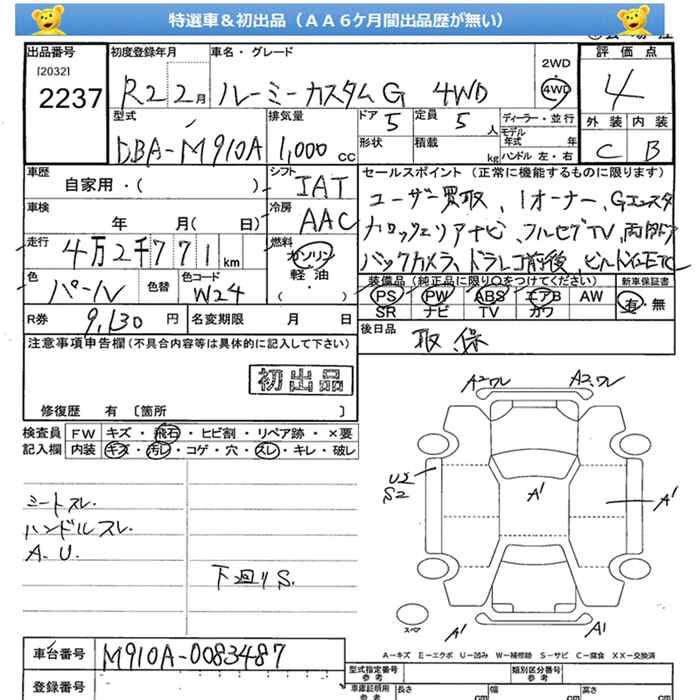 特選車＆初出品（ＡＡ６ケ月間出品歴が無い）
出品番号 初度登録年月 車名・グレード 評価点
[2032] 2237 R2 2月 ルーミーカスタムG 4WD 2WD 4WD 4
型式 排気量 ドア 5 定員 5人 ディーラー・並行 外装 内装
DBA-M910A 1,000cc 形状 積載 kg モデル年式 年 ハンドル 左・右 C B
車歴 自家用・( ) シフト IAT セールスポイント（正常に機能するものに限ります）
車検 年 月( 日) 冷房 AAC ユーザー買取、1オーナー、Gエコスタ
走行 4万2千771km 燃料 ガソリン 軽油 ( ・ ) カロッツェリアナビ、フルセグTV、両側ドア
バックカメラ、ドラレコ前後、ビルトインETC
色 パール 色替 色コード W24 装備品（純正品に限り○をつけてください） 新車保証書
PS PW ABS エアB AW 有・無
R券 9,130円 名変期限 月 日 SR ナビ TV カワ
注意事項申告欄(不具合内容等は具体的に記入して下さい) 後日品 取、保
初出品
修復歴 有 〔箇所 〕
検査員 FW キズ・飛石・ヒビ割・リペア跡・×要
記入欄 内装 キズ・汚レ・コゲ・穴・スレ・キレ・破レ
A2ワレ A2、ワレ
U2
S2
A1 A1
シートスレ、
ハンドルスレ、
A、U、
下回りS、
スペア A1 A1
A－キズ E－エクボ U－凹み W－補修跡 S－サビ C－腐食 XX－交換済
車台番号 M910A-0083487
登録番号 型式指定番号 参考 類別区分番号 参考
車庫証明用 参考 長さ cm 幅 cm 高さ cm